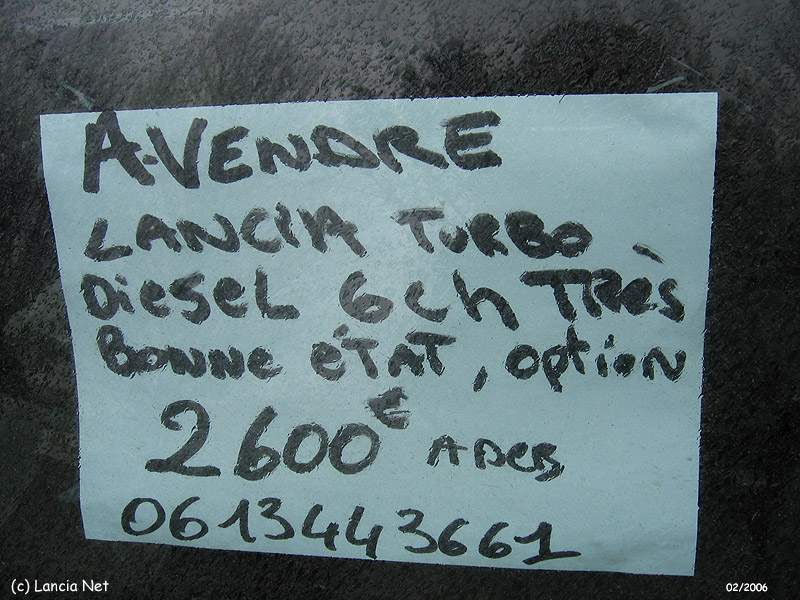 A.VENDRE
LANCIA TURBO
DiESEL 6ch TRès
BONNE éTAT, option
2600€ A DEB
0613443661
(c) Lancia Net
02/2006